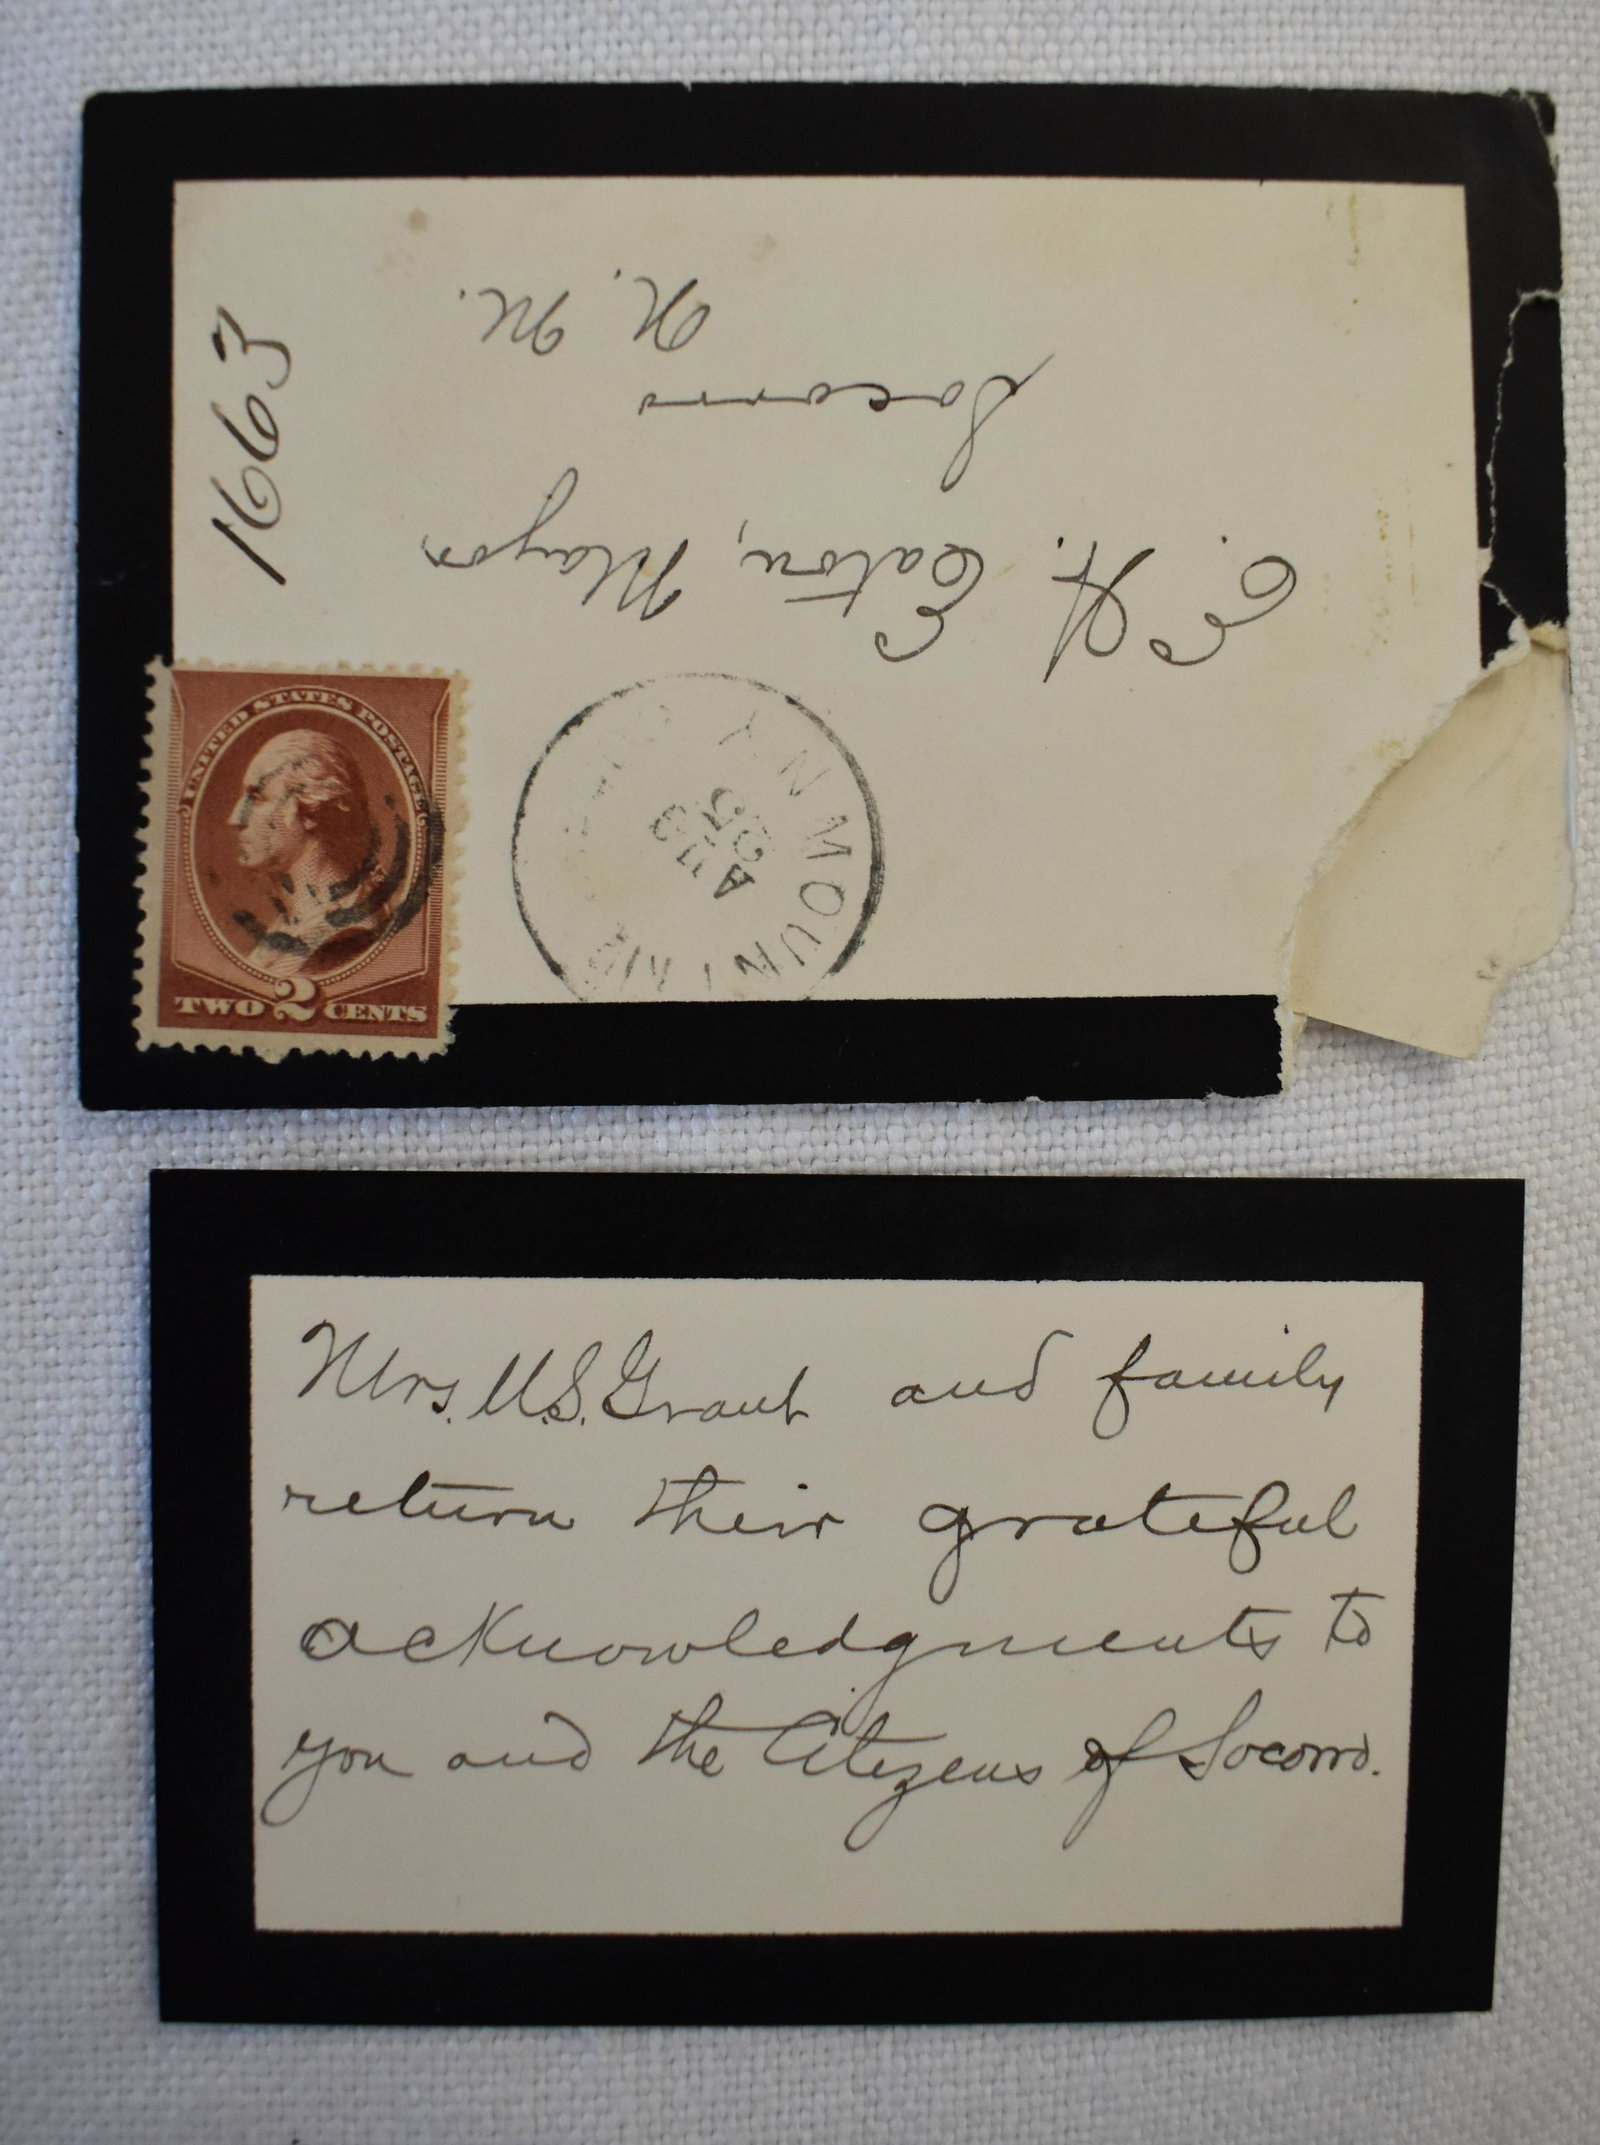 1663
E. H. Eaton, Mayor
Socorro
N. M.
UNITED STATES POSTAGE
TWO 2 CENTS
AUG
25
N.Y.
Mrs. U.S. Grant and family
return their grateful
acknowledgments to
you and the Citizens of Socorro.